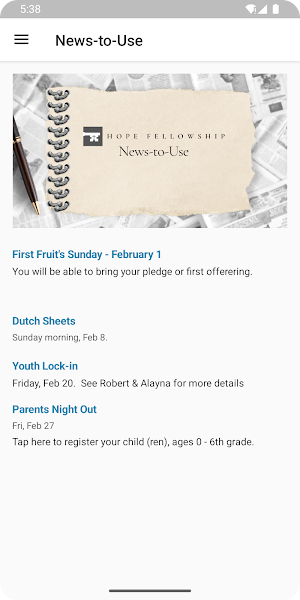 5:38
News-to-Use
HOPE FELLOWSHIP
News-to-Use
First Fruit's Sunday - February 1
You will be able to bring your pledge or first offerering.
Dutch Sheets
Sunday morning, Feb 8.
Youth Lock-in
Friday, Feb 20.  See Robert & Alayna for more details
Parents Night Out
Fri, Feb 27
Tap here to register your child (ren), ages 0 - 6th grade.